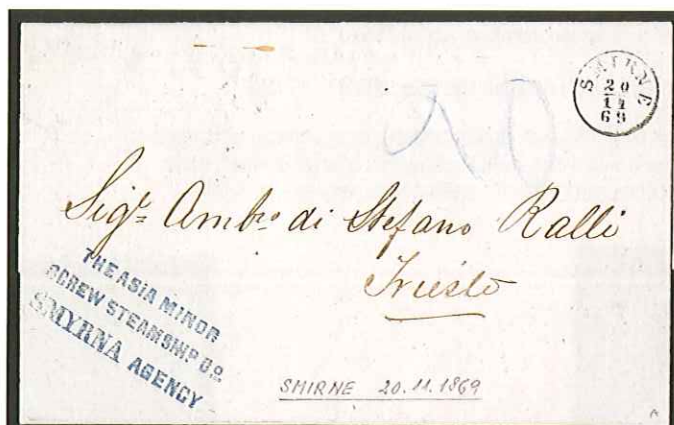 SMIRNE
20
11
69
10
Sigr. Ambro. di Stefano Ralli
Trieste
THE ASIA MINOR
SCREW STEAMSHIP Co.
SMYRNA AGENCY
SMIRNE 20.11.1869